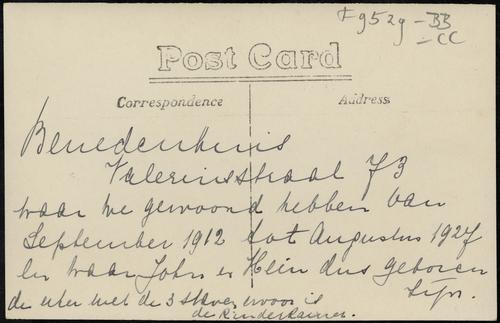 F 952 g - BB
- CC
Post Card
Correspondence
Address
Benedenhuis
Valeriusstraat 73
waar we gewoond hebben van
September 1912 tot Augustus 1927
en waar John en Hein dus geboren
zijn.
de met de 3 ervoor is
de Kinderkamer.